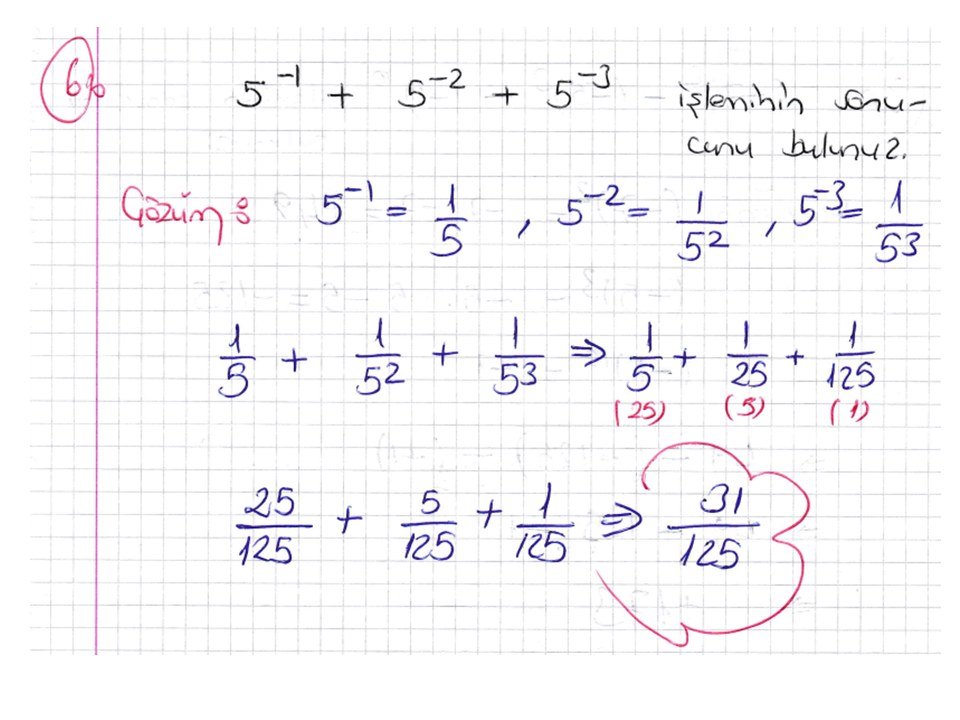 6) 5⁻¹ + 5⁻² + 5⁻³ işleminin sonu-
cunu bulunuz.
Çözüm: 5⁻¹ = 1/5 , 5⁻² = 1/5² , 5⁻³ = 1/5³
1/5 + 1/5² + 1/5³ ⇒ 1/5 + 1/25 + 1/125
(25) (5) (1)
25/125 + 5/125 + 1/125 ⇒ 31/125